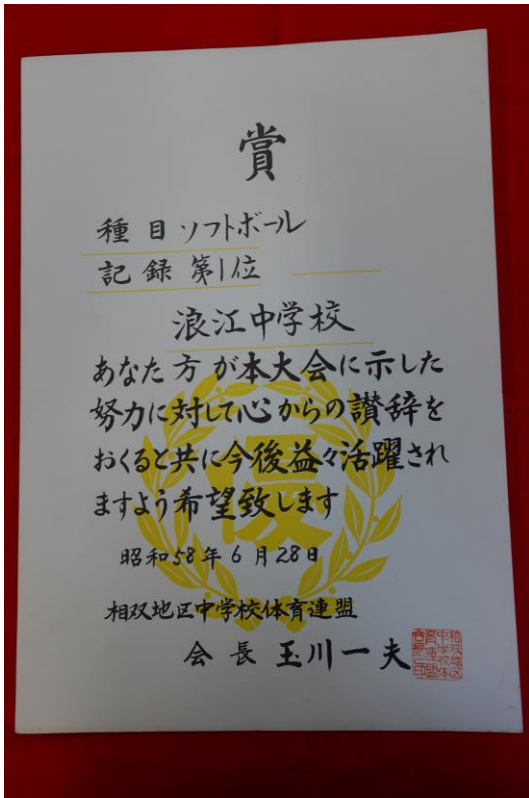 賞
種目 ソフトボール
記録 第1位
浪江中学校
あなた方が本大会に示した
努力に対して心からの讃辞を
おくると共に今後益々活躍され
ますよう希望致します
優
昭和58年6月28日
相双地区中学校体育連盟
会長 玉川一夫
相双地区
中学校体
育連盟
会長之印